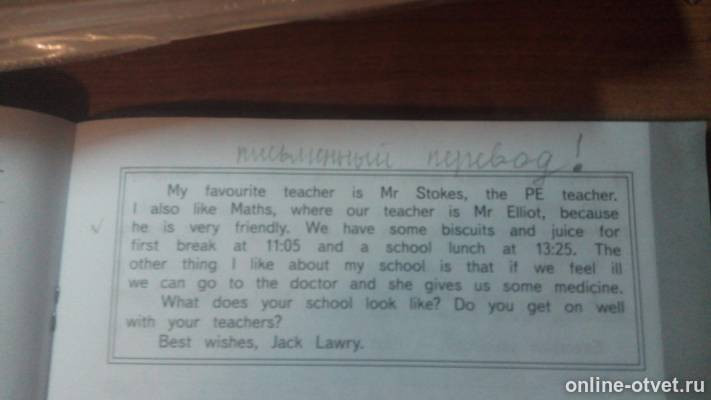 письменный перевод!
My favourite teacher is Mr Stokes, the PE teacher.
I also like Maths, where our teacher is Mr Elliot, because
he is very friendly. We have some biscuits and juice for
first break at 11:05 and a school lunch at 13:25. The
other thing I like about my school is that if we feel ill
we can go to the doctor and she gives us some medicine.
What does your school look like? Do you get on well
with your teachers?
Best wishes, Jack Lawry.
online-otvet.ru